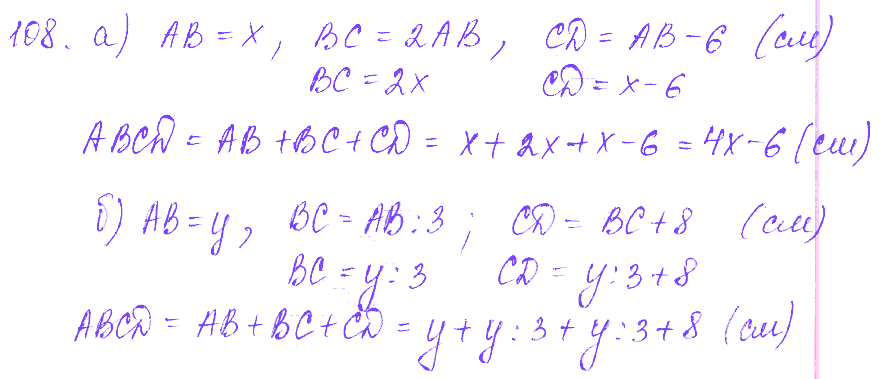 108. а) AB = x, BC = 2AB, CD = AB - 6 (см)
BC = 2x CD = x - 6
ABCD = AB + BC + CD = x + 2x + x - 6 = 4x - 6 (см)
б) AB = y, BC = AB : 3 ; CD = BC + 8 (см)
BC = y : 3 CD = y : 3 + 8
ABCD = AB + BC + CD = y + y : 3 + y : 3 + 8 (см)